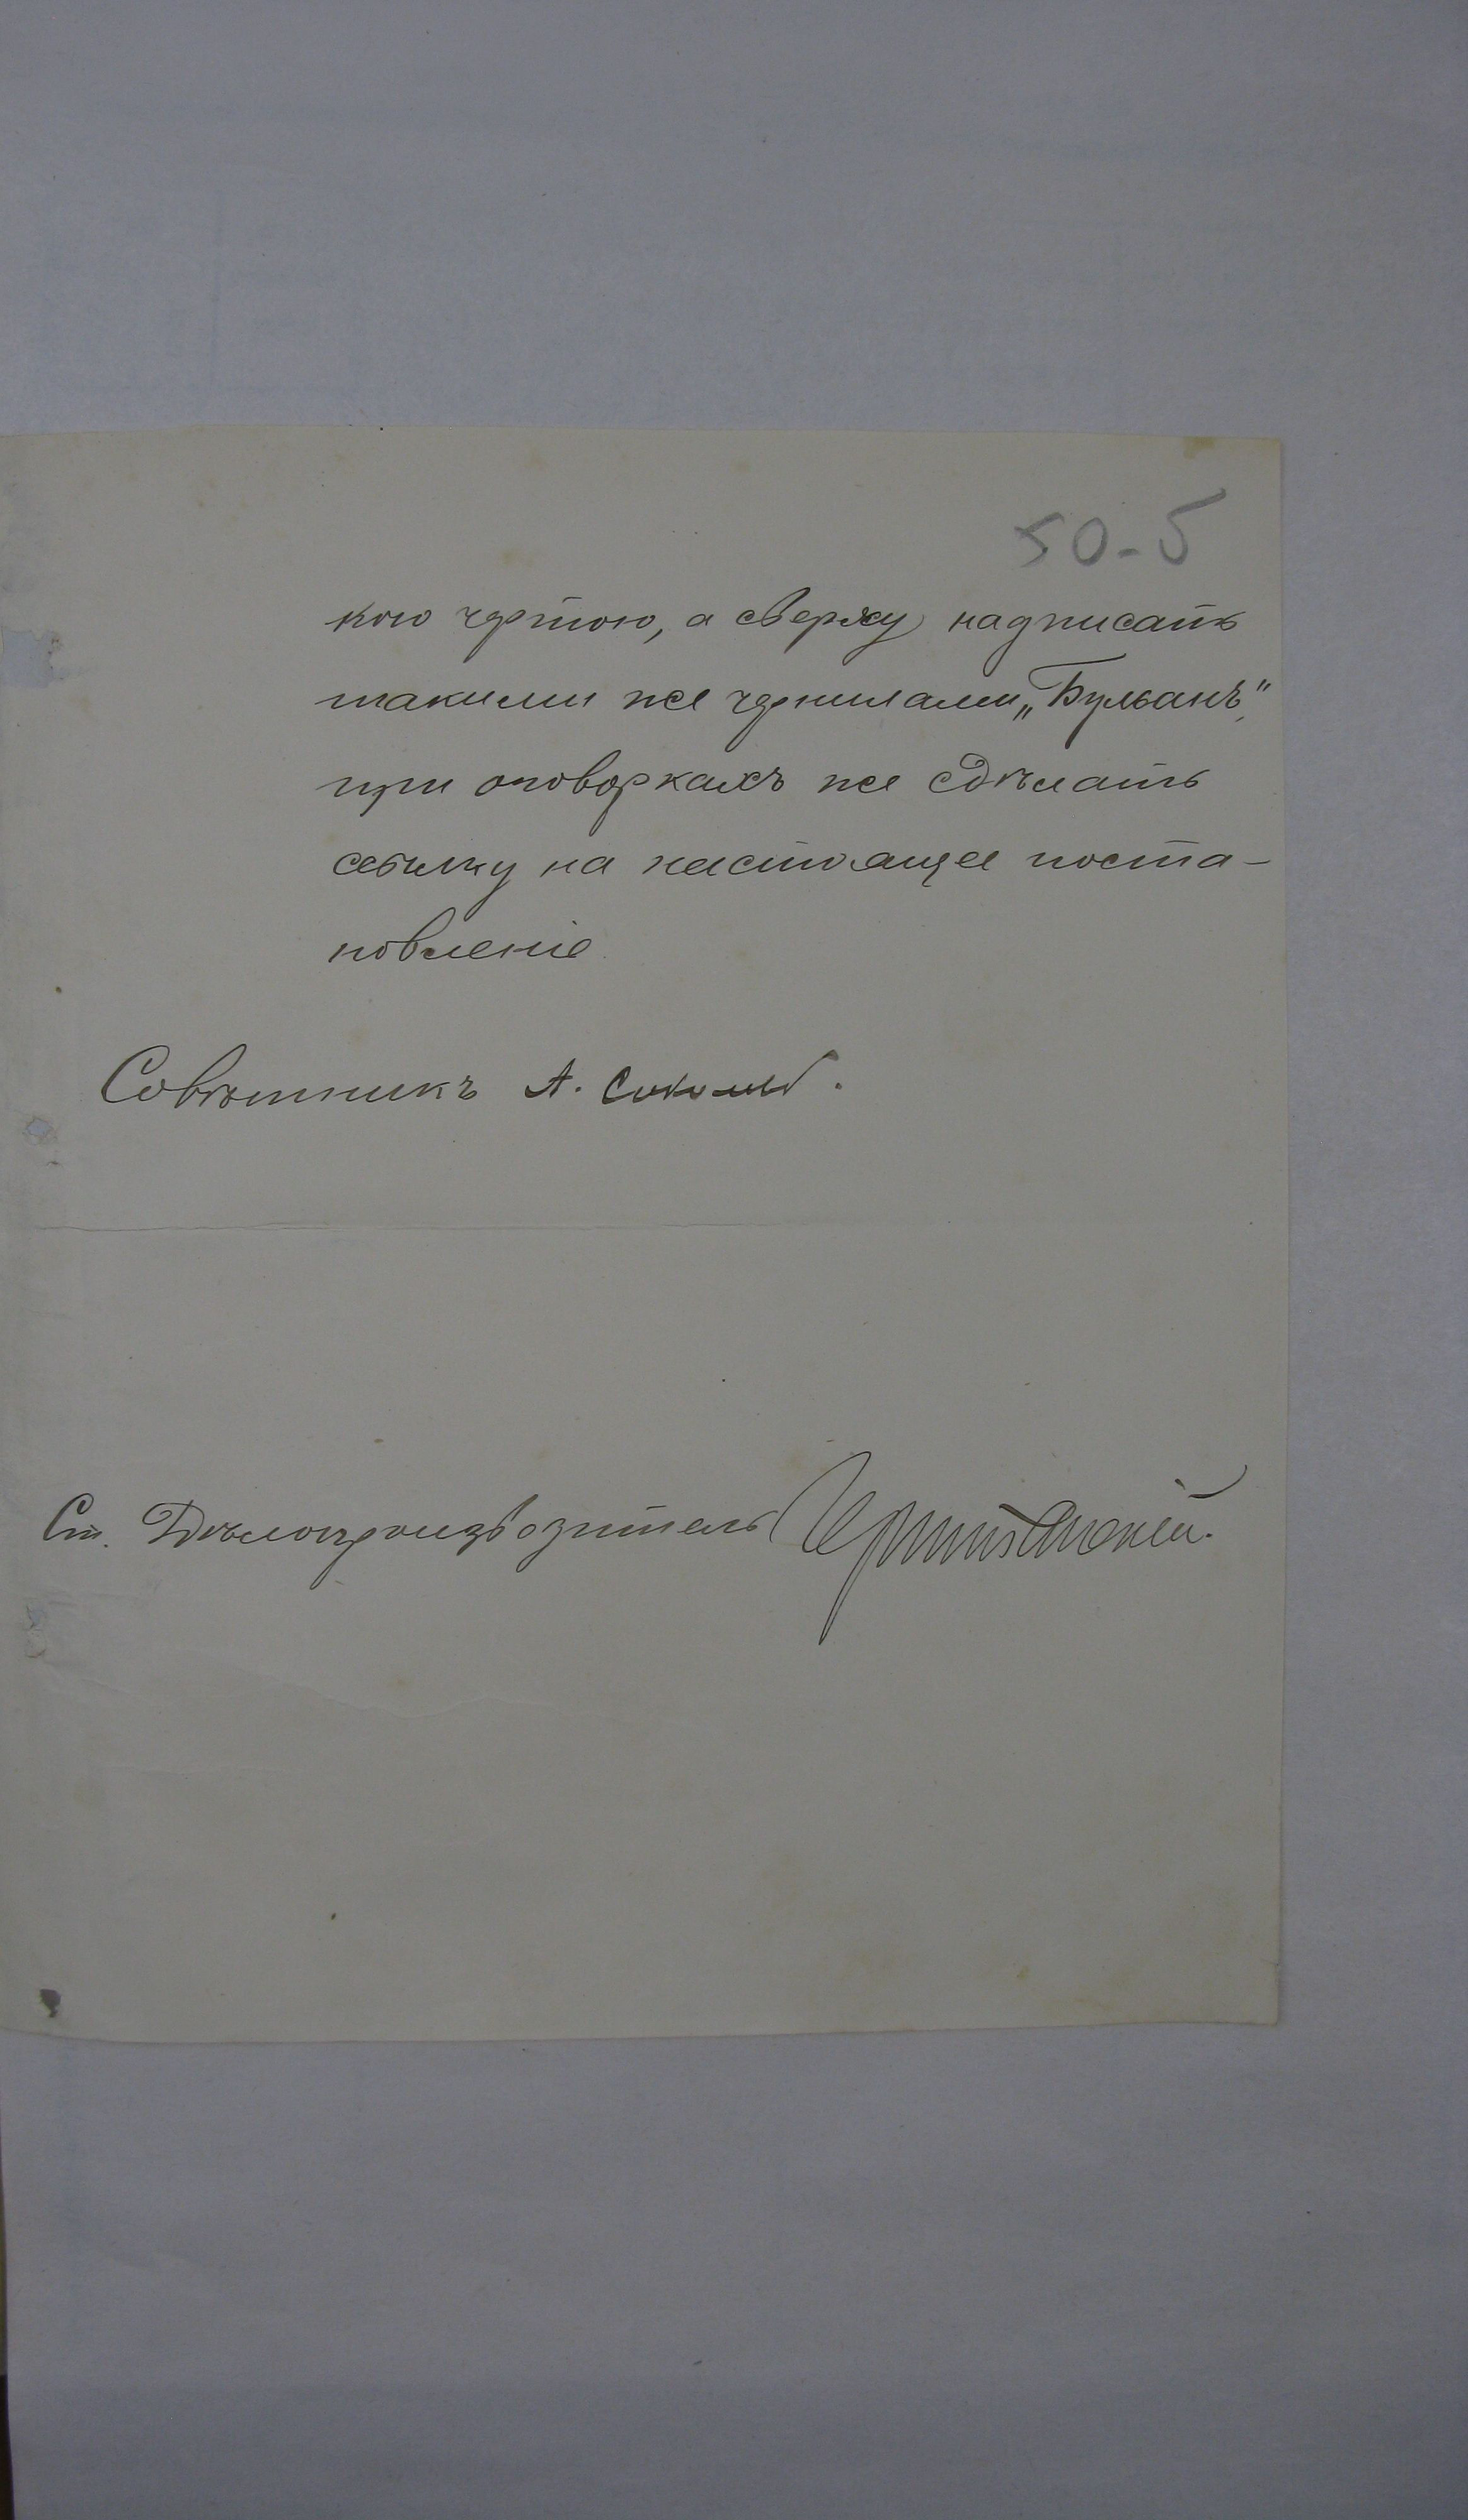 50-5
кою чертою, а сверху надписать
такими же чернилами „Бульванъ",
при оговоркахъ же сдѣлать
ссылку на настоящее поста-
новленіе.
Совѣтникъ А. Соколовъ.
Ст. Дѣлопроизводитель